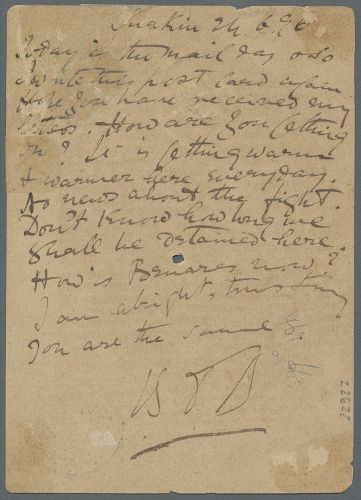 Suakin 24.6.96
Today is the mail day & so
I write this post card again
Hope you have received my
letters. How are you getting
on? It is getting warm
& warmer here everyday.
No news about the fight.
Don't know how long we
shall be detained here.
How is Benares now?
I am alright, trusting
you are the same
22622